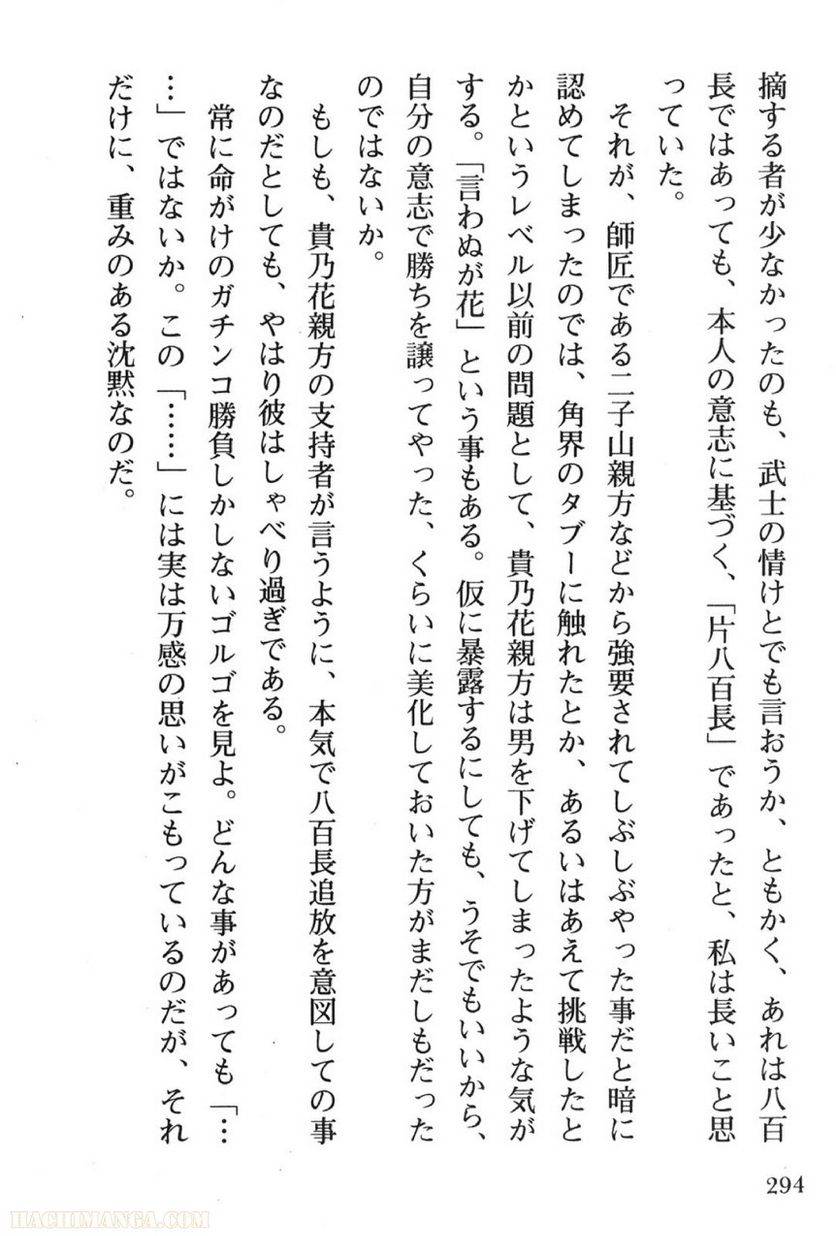 摘する者が少なかったのも、武士の情けとでも言おうか、ともかく、あれは八百
長ではあっても、本人の意志に基づく、「片八百長」であったと、私は長いこと思
っていた。
それが、師匠である二子山親方などから強要されてしぶしぶやった事だと暗に
認めてしまったのでは、角界のタブーに触れたとか、あるいはあえて挑戦したと
かというレベル以前の問題として、貴乃花親方は男を下げてしまったような気が
する。「言わぬが花」という事もある。仮に暴露するにしても、うそでもいいから、
自分の意志で勝ちを譲ってやった、くらいに美化しておいた方がまだしもだった
のではないか。
もしも、貴乃花親方の支持者が言うように、本気で八百長追放を意図しての事
なのだとしても、やはり彼はしゃべり過ぎである。
常に命がけのガチンコ勝負しかしないゴルゴを見よ。どんな事があっても「…
…」ではないか。この「……」には実は万感の思いがこもっているのだが、それ
だけに、重みのある沈黙なのだ。
294
HACHIMANGA.COM